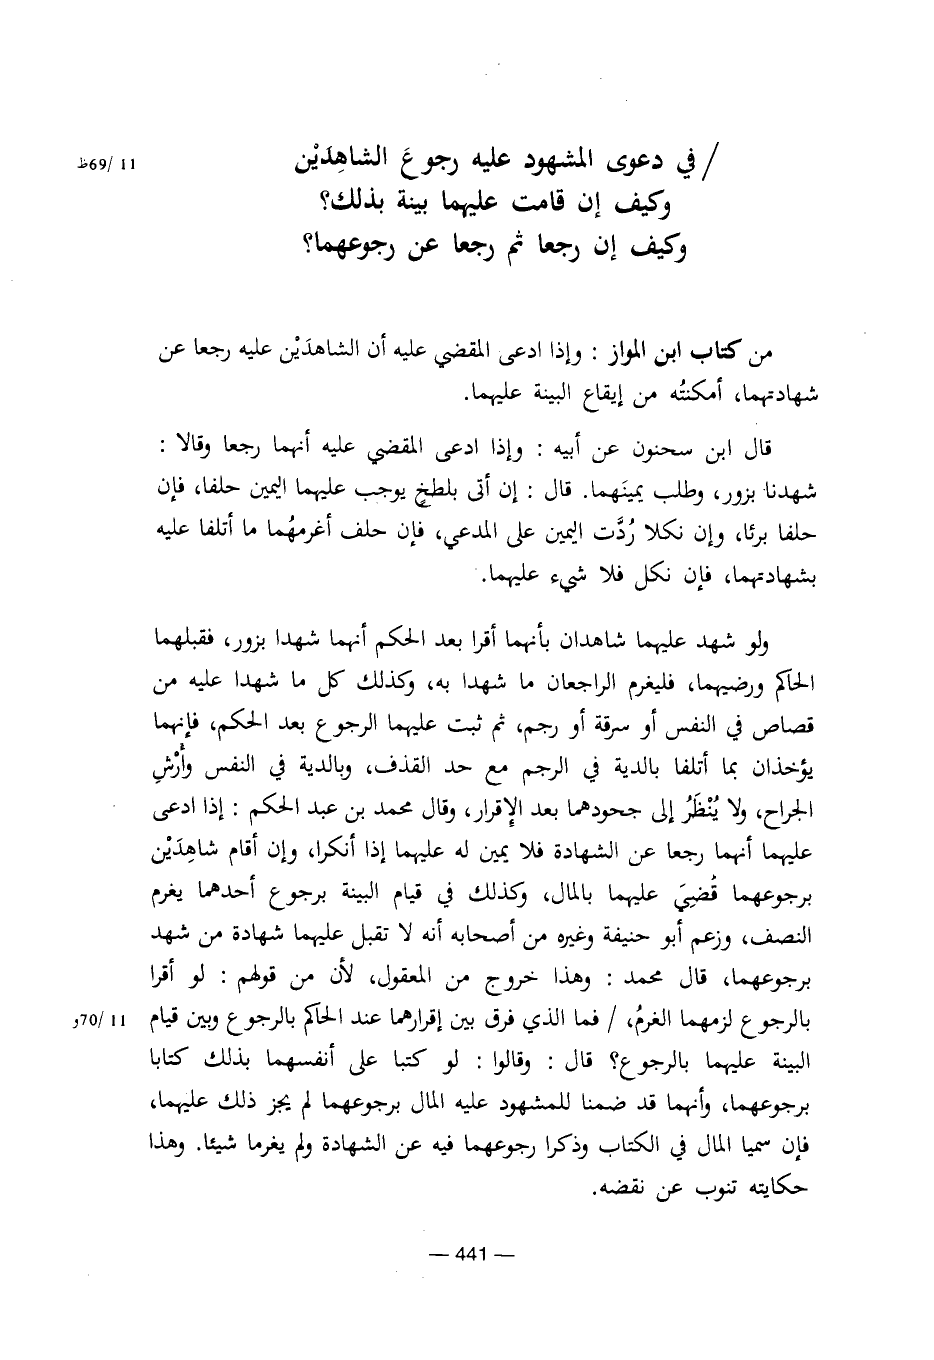 / في دعوى المشهود عليه رجوعَ الشاهِدَيْن
11 /69ظ
وكيف إن قامت عليهما بينة بذلك؟
وكيف إن رجعا ثم رجعا عن رجوعهما؟
من كتاب ابن المواز : وإذا ادعى المقضي عليه أن الشاهدَيْن عليه رجعا عن
شهادتهما، أمكنتُه من إيقاع البينة عليهما.
قال ابن سحنون عن أبيه : وإذا ادعى المقضي عليه أنهما رجعا وقالا :
شهدنا بزور، وطلب يمينَهما. قال : إن أتى بلطخٍ يوجب عليهما اليمين حلفا، فإن
حلفا برئا، وإن نكلا رُدَّت اليمين على المدعي، فإن حلف أغرمهُما ما أتلفا عليه
بشهادتهما، فإن نكل فلا شيء عليهما.
ولو شهد عليهما شاهدان بأنهما أقرا بعد الحكم أنهما شهدا بزور، فقبلهما
الحاكم ورضيهما، فليغرم الراجعان ما شهدا به، وكذلك كل ما شهدا عليه من
قصاص في النفس أو سرقة أو رجم، ثم ثبت عليهما الرجوع بعد الحكم، فإنهما
يؤخذان بما أتلفا بالدية في الرجم مع حد القذف، وبالدية في النفس وأَرْشِ
الجراح، ولا يُنْظَرُ إلى جحودهما بعد الإقرار، وقال محمد بن عبد الحكم : إذا ادعى
عليهما أنهما رجعا عن الشهادة فلا يمين له عليهما إذا أنكرا، وإن أقام شاهِدَيْن
برجوعهما قُضِيَ عليهما بالمال، وكذلك في قيام البينة برجوع أحدهما يغرم
النصف، وزعم أبو حنيفة وغيره من أصحابه أنه لا تقبل عليهما شهادة من شهد
برجوعهما، قال محمد : وهذا خروج من المعقول، لأن من قولهم : لو أقرا
بالرجوع لزمهما الغرمُ، / فما الذي فرق بين إقرارهما عند الحاكم بالرجوع وبين قيام
11 /70و
البينة عليهما بالرجوع؟ قال : وقالوا : لو كتبا على أنفسهما بذلك كتابا
برجوعهما، وأنهما قد ضمنا للمشهود عليه المال برجوعهما لم يجز ذلك عليهما،
فإن سميا المال في الكتاب وذكرا رجوعهما فيه عن الشهادة ولم يغرما شيئا. وهذا
حكايته تنوب عن نقضه.
— 441 —